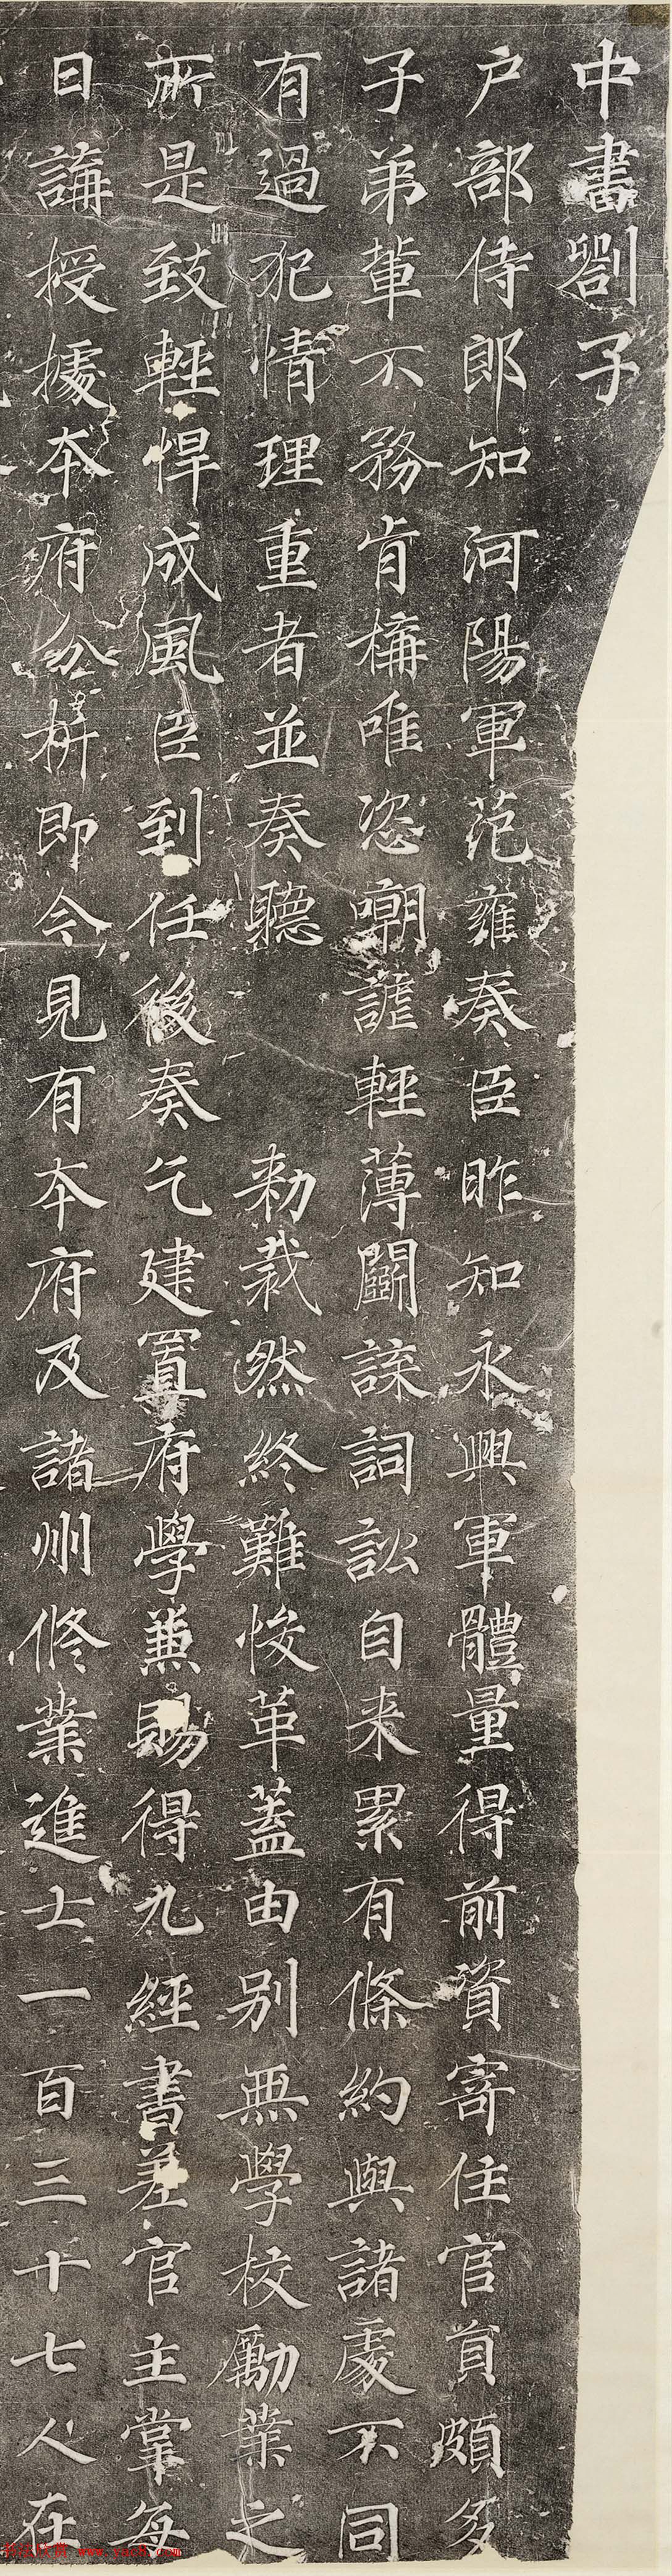 中書劄子
户部侍郎知河陽軍范雍奏臣昨知永興軍體量得前資寄住官員頗多
子弟輩不務肯構唯恣嘲謔輕薄鬬諜詞訟自来累有條約與諸處不同
有過犯情理重者並奏聽 勑裁然終難悛革蓋由别無學校勵業之
所是致輕悍成風臣到任後奏乞建置府學兼賜得九經書差官主掌每
日講授據本府分析即今見有本府及諸州修業進士一百三十七人在
www.yac8.com